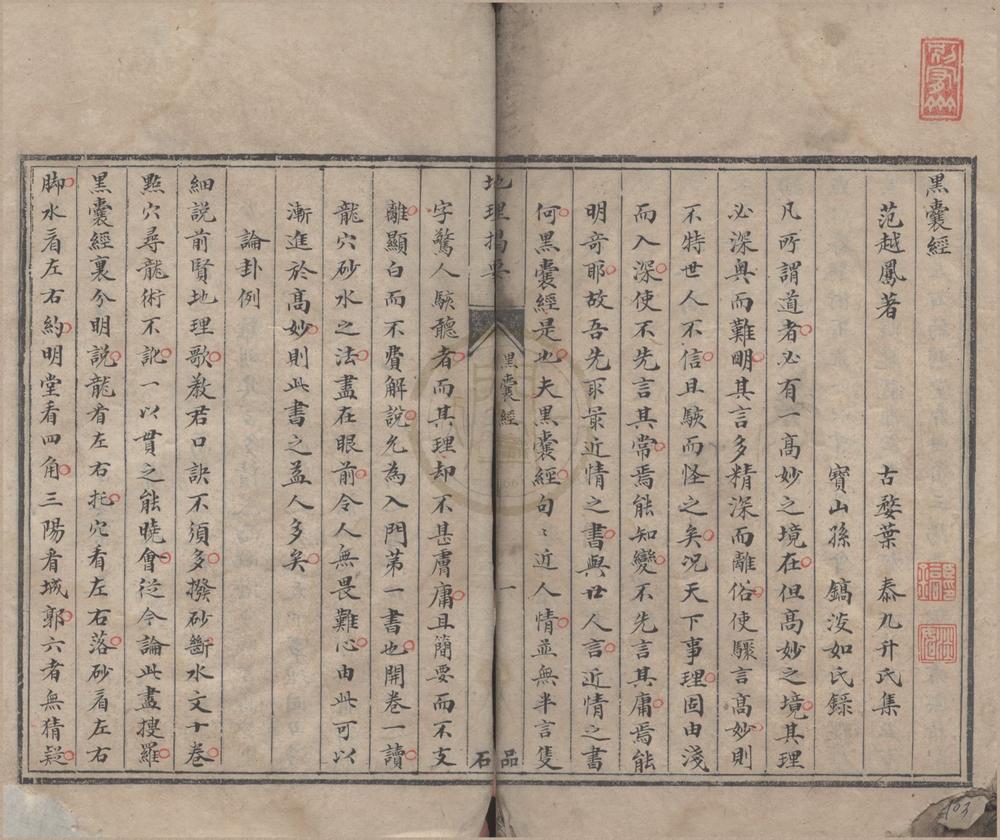 黑囊經
范越鳳著
古婺葉 泰九升氏集
寶山孫 鎬浚如氏錄
凡所謂道者必有一高妙之境在但高妙之境其理
必深奧而難明其言多精深而離俗使驟言高妙則
不特世人不信且駭而怪之矣况天下事理固由淺
而入深使不先言其常焉能知變不先言其庸焉能
明奇耶故吾先取最近情之書與世人言近情之書
何黑囊經是也夫黑囊經句〻近人情並無半言隻
地理揭要
黑囊經
一
品石
字驚人駭聽者而其理却不甚膚庸且簡要而不支
離顯白而不費解說允為入門第一書也開卷一讀
龍穴砂水之法盡在眼前令人無畏難心由此可以
漸進於高妙則此書之益人多矣
論卦例
細説前賢地理歌教君口訣不須多撥砂斷水文十卷
㸃穴尋龍術不訛一以貫之能曉會從今論此盡搜羅
黑囊經裏分明說龍看左右托穴看左右落砂看左右
脚水看左右約明堂看四角三陽看城郭六者無猜疑
103